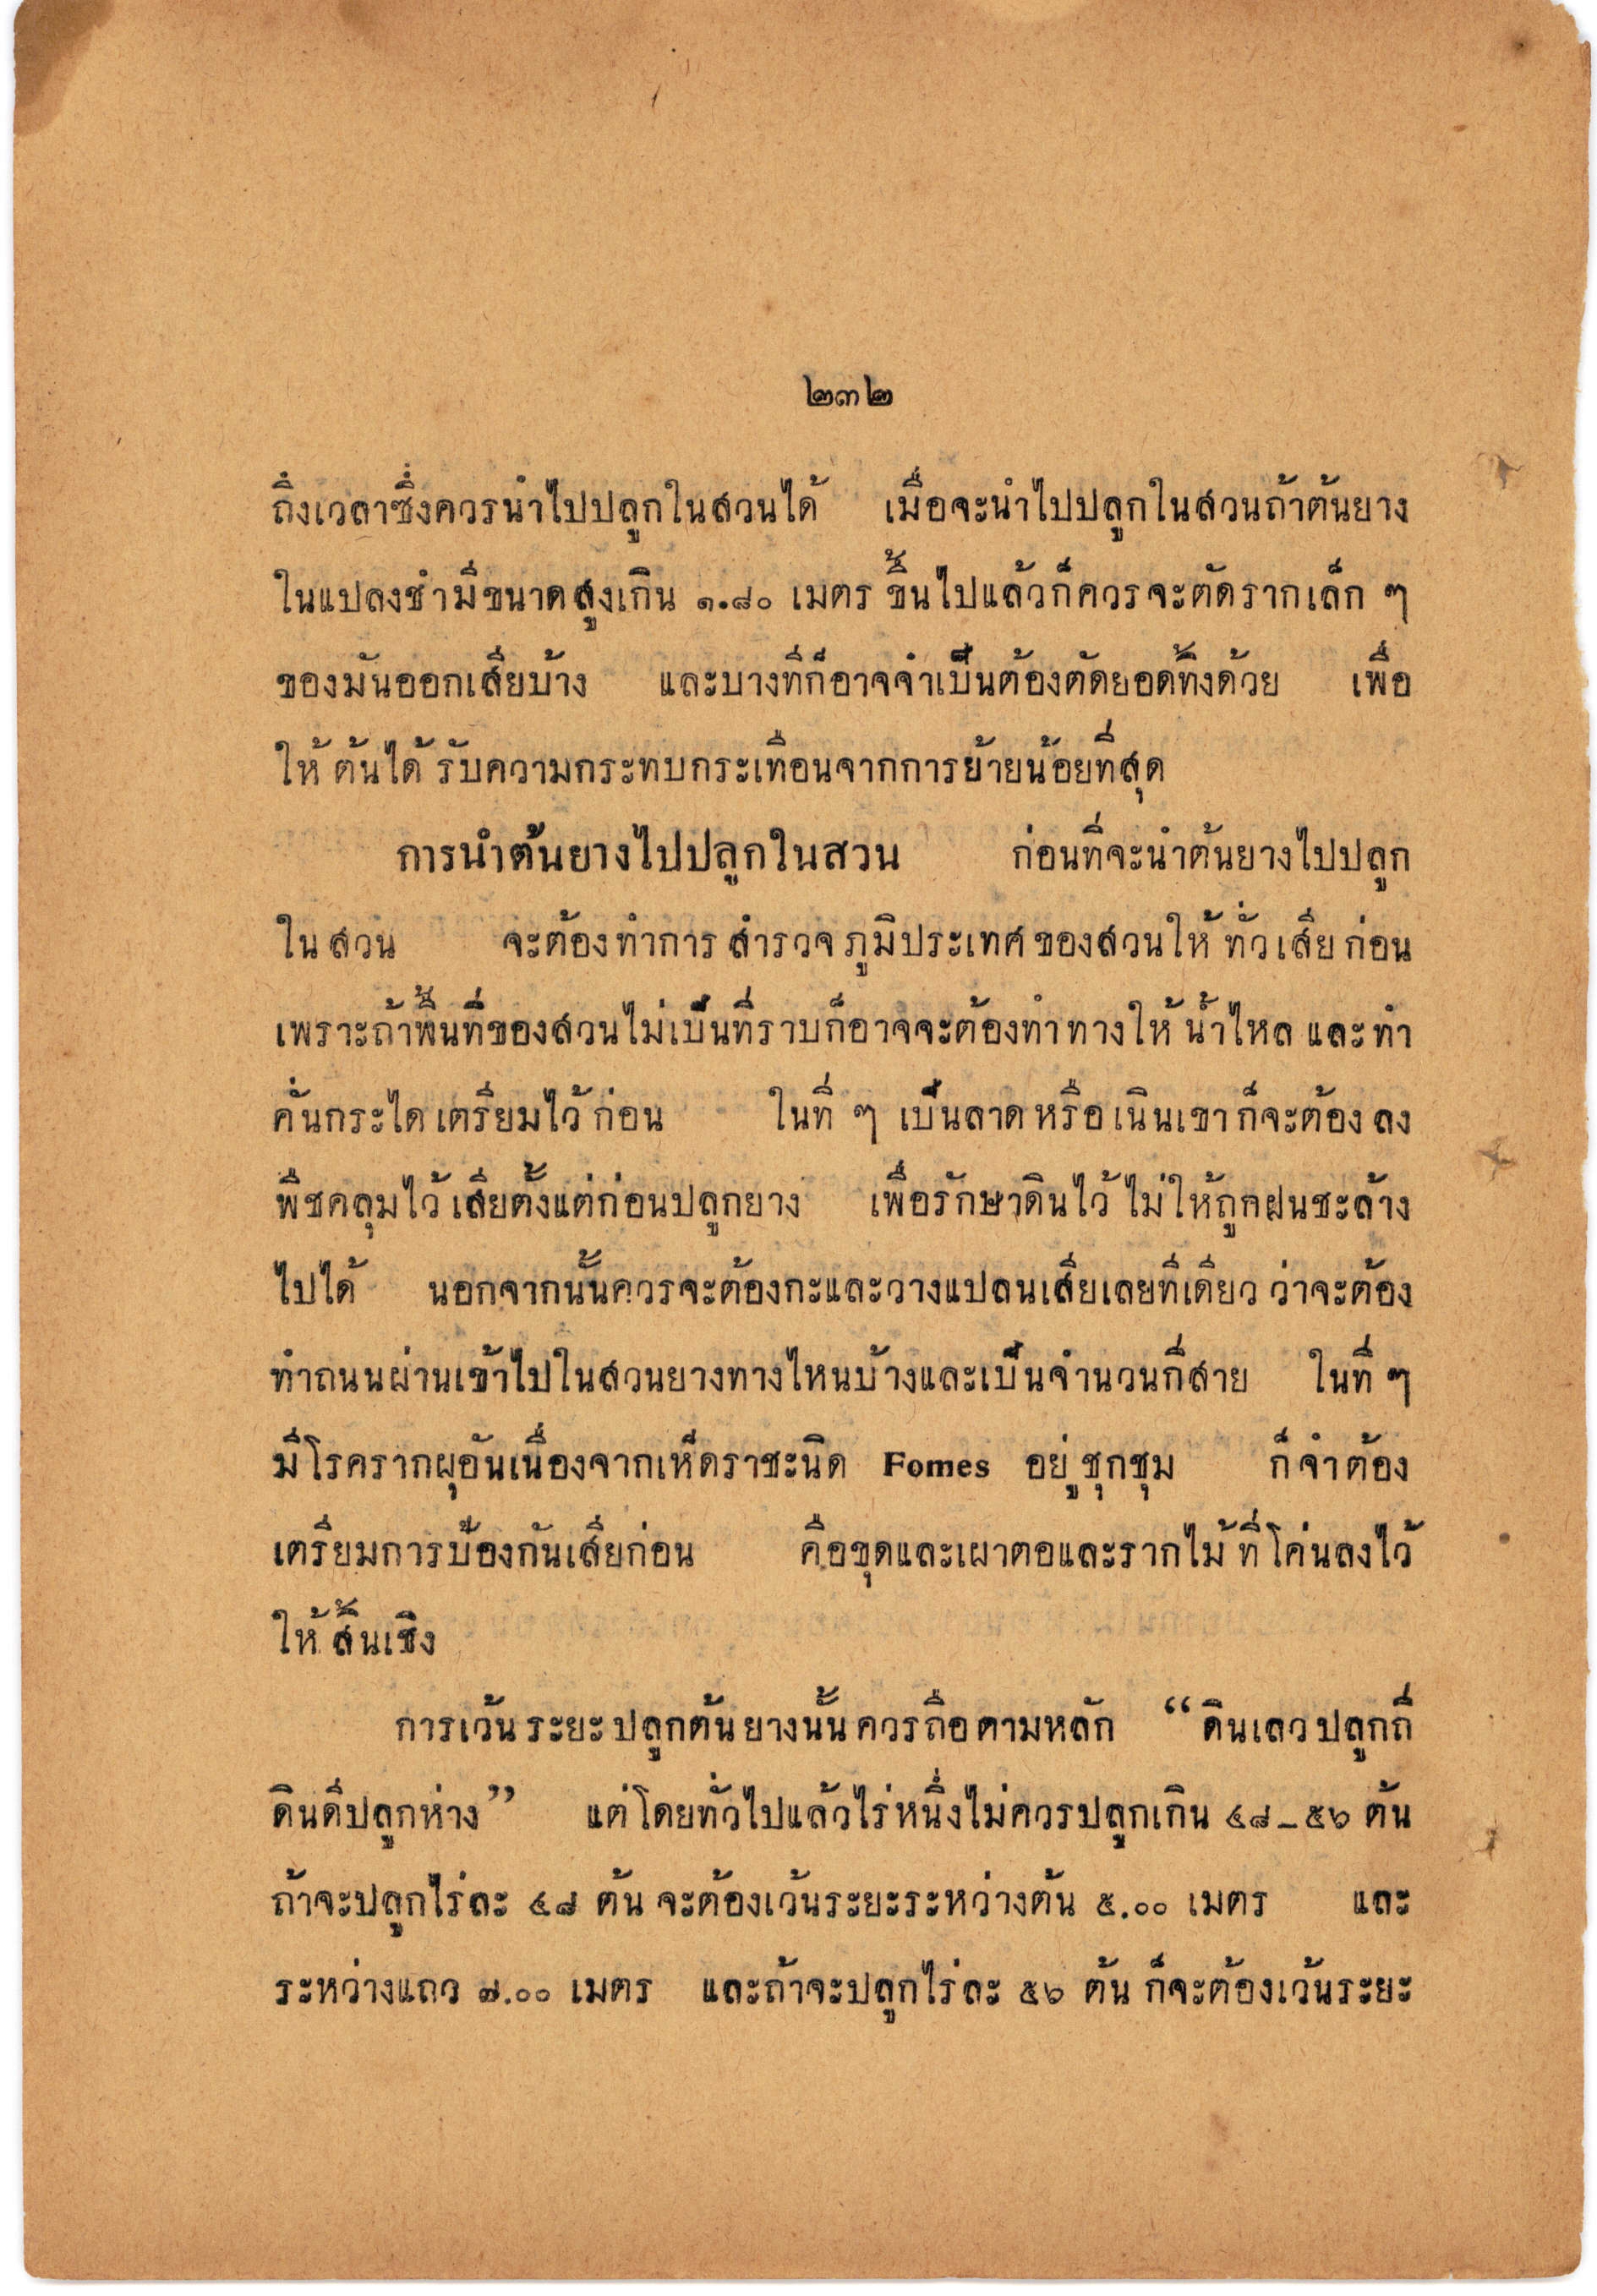 ๒๓๒
ถึงเวลาซึ่งควรนำไปปลูกในสวนได้ เมื่อจะนำไปปลูกในสวนถ้าต้นยาง
ในแปลงชำมีขนาดสูงเกิน ๑.๘๐ เมตร ขึ้นไปแล้วก็ควรจะตัดรากเล็ก ๆ
ของมันออกเสียบ้าง และบางทีก็อาจจำเป็นต้องตัดยอดทิ้งด้วย เพื่อ
ให้ต้นได้รับความกระทบกระเทือนจากการย้ายน้อยที่สุด
การนำต้นยางไปปลูกในสวน ก่อนที่จะนำต้นยางไปปลูก
ในสวน จะต้องทำการสำรวจภูมิประเทศของสวนให้ทั่วเสียก่อน
เพราะถ้าพื้นที่ของสวนไม่เป็นที่ราบก็อาจจะต้องทำทางให้น้ำไหล และทำ
คั่นกระไดเตรียมไว้ก่อน ในที่ ๆ เป็นลาดหรือเนินเขาก็จะต้องลง
พืชคลุมไว้เสียตั้งแต่ก่อนปลูกยาง เพื่อรักษาดินไว้ไม่ให้ถูกฝนชะล้าง
ไปได้ นอกจากนั้นควรจะต้องกะและวางแปลนเสียเลยทีเดียว ว่าจะต้อง
ทำถนนผ่านเข้าไปในสวนยางทางไหนบ้างและเป็นจำนวนกี่สาย ในที่ ๆ
มีโรครากผุอันเนื่องจากเห็ดราชะนิด Fomes อยู่ชุกชุม ก็จำต้อง
เตรียมการป้องกันเสียก่อน คือขุดและเผาตอและรากไม้ที่โค่นลงไว้
ให้สิ้นเชิง
การเว้นระยะปลูกต้นยางนั้นควรถือตามหลัก “ดินเลวปลูกถี่
ดินดีปลูกห่าง” แต่โดยทั่วไปแล้วไร่หนึ่งไม่ควรปลูกเกิน ๔๘–๕๖ ต้น
ถ้าจะปลูกไร่ละ ๔๘ ต้น จะต้องเว้นระยะระหว่างต้น ๕.๐๐ เมตร และ
ระหว่างแถว ๗.๐๐ เมตร และถ้าจะปลูกไร่ละ ๕๖ ต้น ก็จะต้องเว้นระยะ